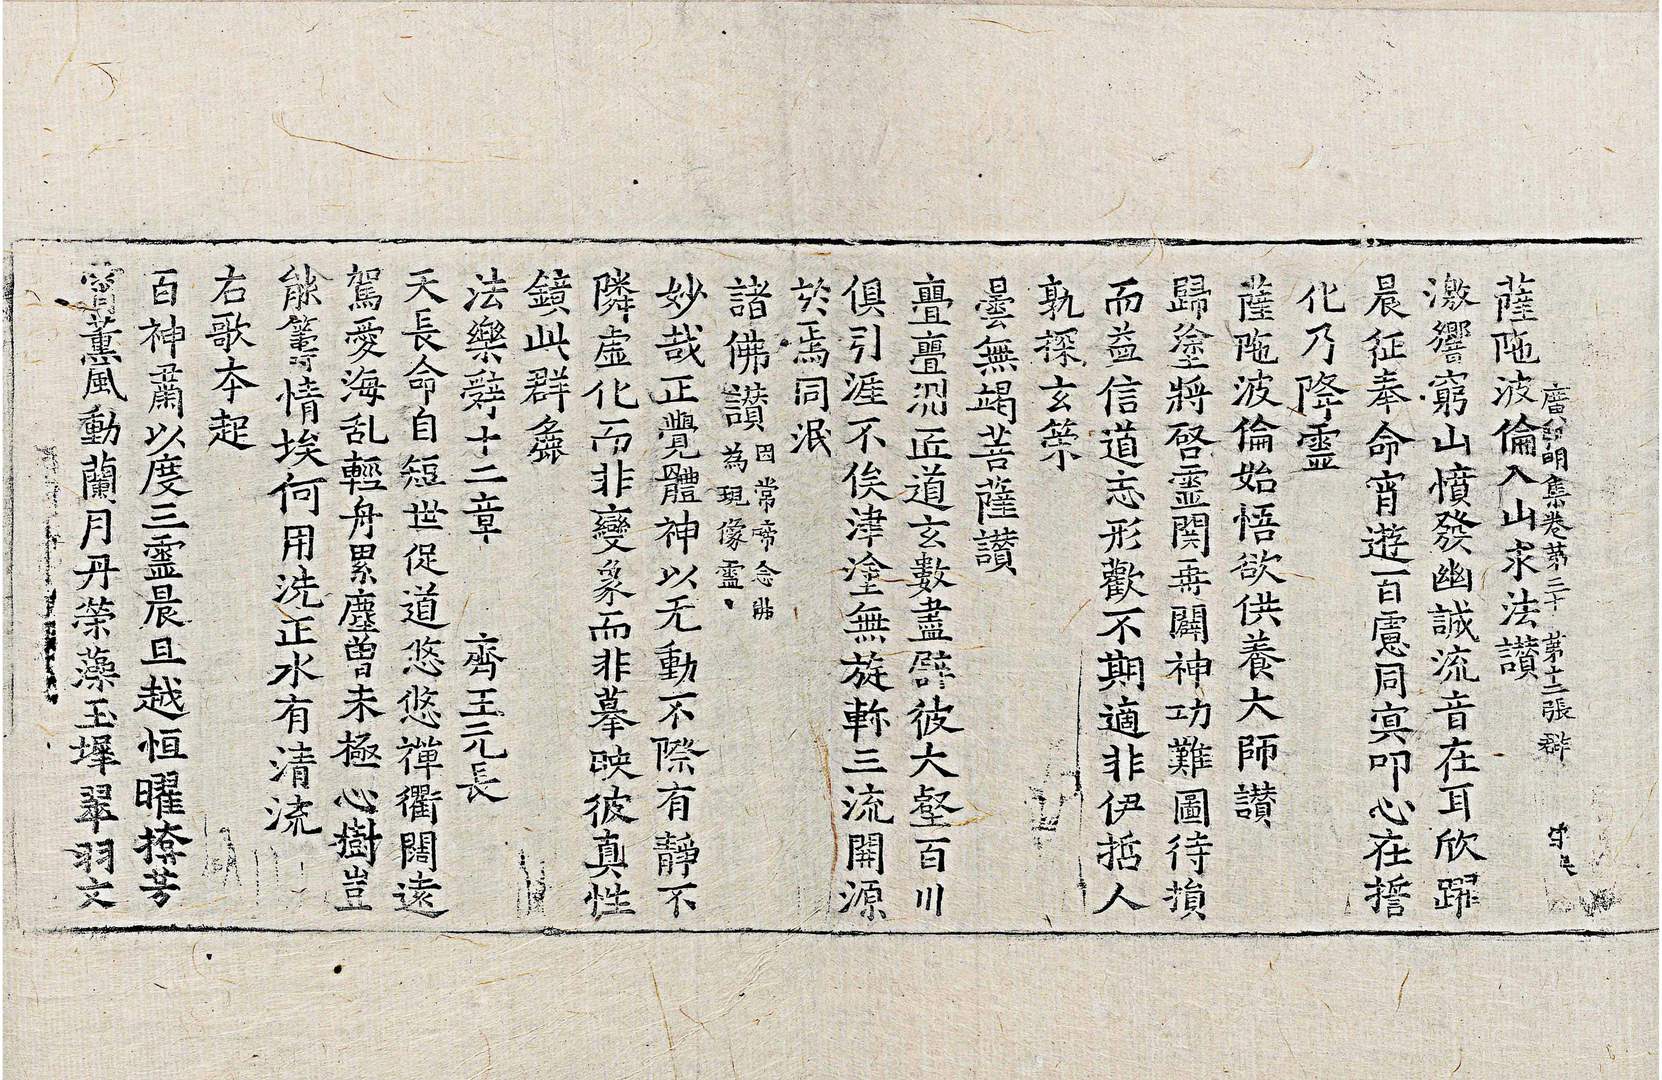 廣弘明集卷第三十　第十二張　群
薩陁波倫入山求法讃
激響窮山憤發幽誠流音在耳欣躍
晨征奉命宵遊百慮同冥叩心在誓
化乃降靈
薩陁波倫始悟欲供養大師讃
歸塗將啓靈關再闢神功難圖待損
而益信道忘形歡不期適非伊哲人
孰探玄策
曇無竭菩薩讃
亹亹淵匠道玄數盡譬彼大壑百川
俱引涯不俟津塗無旋軫三流開源
於焉同泯
諸佛讃因常啼念佛為現像靈
妙哉正覺體神以无動不際有靜不
隣虛化而非變象而非摹映彼真性
鏡此群麁
法樂辭十二章　齊王元長
天長命自短世促道悠悠禪衢闊遠
駕愛海乱輕舟累塵曾未極心樹豈
能籌情埃何用洗正水有清流
右歌本起
百神肅以虔三靈晨且越恒曜撩芳
宵薫風動蘭月丹榮藻玉墀翠羽文